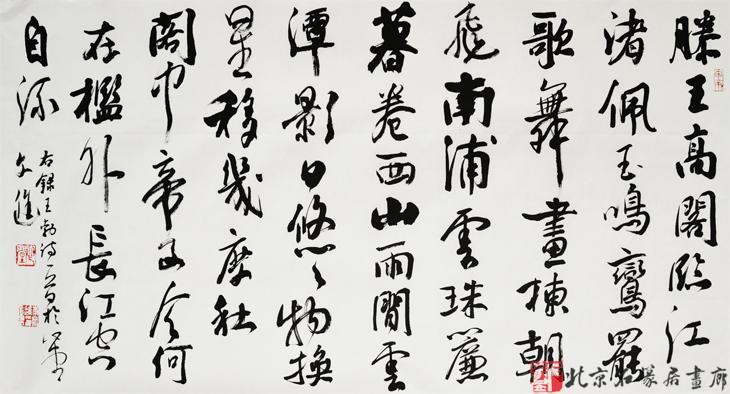 滕王高閣臨江
渚佩玉鳴鸞罷
歌舞畫棟朝
飛南浦雲珠簾
暮卷西山雨閒雲
潭影日悠〻物換
星移幾度秋
閣中帝子今何
在檻外長江空
自流
右錄王勃詩一首於
文進
北京居畫廊